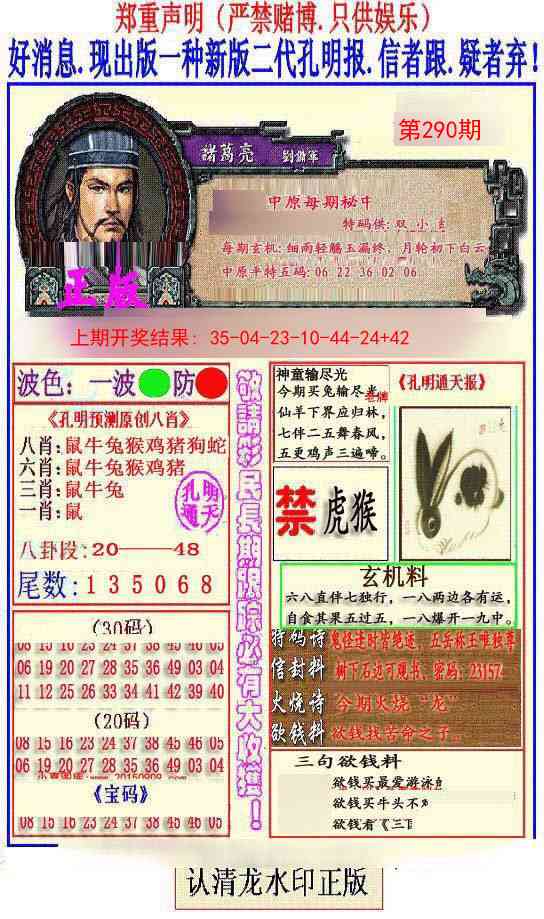 郑重声明（严禁赌博.只供娱乐）
好消息.现出版一种新版二代孔明报.信者跟.疑者弃!
第290期
諸葛亮
劉備軍
中原每期秘
特码供: 双 小
每期玄机: 细雨轻觞玉漏终，月轮初下白云
中原平特五码: 06 22 36 02 06
正版
上期开奖结果: 35-04-23-10-44-24+42
波色：一波 防
《孔明预测原创八肖》
八肖: 鼠牛兔猴鸡猪狗蛇
六肖: 鼠牛兔猴鸡猪
三肖: 鼠牛兔
一肖: 鼠
孔明通天
八卦段: 20——48
尾数: 1 3 5 0 6 8
(30码)
05 15 16 23 24 37 38 45 46 05
06 19 20 27 28 35 36 49 03 04
11 12 25 26 33 34 41 42 39 40
(20码)
08 15 16 23 24 37 38 45 46 05
06 19 20 27 28 35 36 49 03 04
《宝码》
08 15 16 23 24 37 38 45 46 05
敬請彩民長期跟踪必有大收獲！
神童输尽光
今期买兔输尽光
仙羊下界应归林，
七伴二五舞春风，
五更鸡声三遍啼。
《孔明通天报》
禁 虎猴
玄机料
六八直伴七独行，一八两边各有运，
自食其果五过五，一八爆开一九中。
特码诗 鬼怪逢时皆绝迹，五岳称王唯独尊
信封料 树下石边可观书，密码: 23157
火烧诗 今期火烧“龙”
欲钱料 欲钱找苦命之子。
三句欲钱料
欲钱买最爱游泳
欲钱买牛头不
欲钱看《三
认清龙水印正版